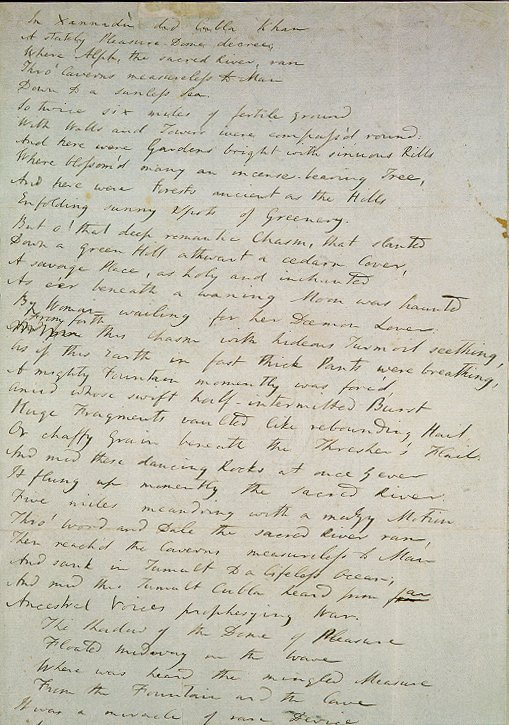 In Xannadù did Cubla Khan
A stately Pleasure-Dome decree;
Where Alph, the sacred River, ran
Thro' Caverns measureless to Man
Down to a sunless Sea.
So twice six miles of fertile ground
With Walls and Towers were compass'd round:
And here were Gardens bright with sinuous Rills
Where blossom'd many an incense-bearing Tree,
And here were Forests ancient as the Hills
Enfolding sunny Spots of Greenery.
But o! that deep romantic Chasm, that slanted
Down a green Hill athwart a cedarn Cover,
A savage Place, as holy and inchanted
As e'er beneath a waning Moon was haunted
By Woman wailing for her Dæmon Lover:
From forth
this Chasm with hideous Turmoil seething,
As if this Earth in fast thick Pants were breathing,
A mighty Fountain momently was forc'd,
Amid whose swift half-intermitted Burst
Huge Fragments vaulted like rebounding Hail,
Or chaffy Grain beneath the Thresher's Flail.
And mid these dancing Rocks at once & ever
It flung up momently the sacred River.
Five miles meandring with a mazy Motion
Thro' Wood and Dale the sacred River ran,
Then reach'd the Caverns measureless to Man
And sank in Tumult to a lifeless Ocean;
And mid this Tumult Cubla heard from far
Ancestral Voices prophesying War.
The Shadow of the Dome of Pleasure
Floated midway on the Wave
Where was heard the mingled Measure
From the Fountain and the Cave
It was a miracle of rare Device